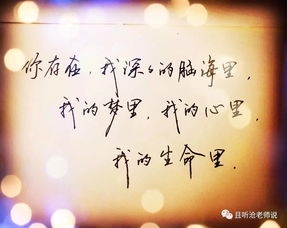 你存在，我深深的脑海里，
我的梦里，我的心里，
我的生命里．
且听沧老师说